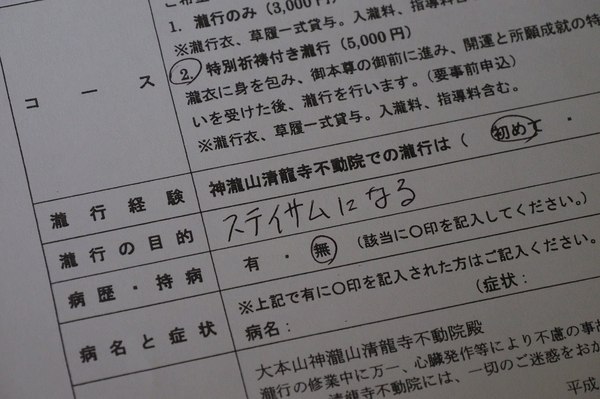 1. 瀧行のみ (3,000円)
※瀧行衣、草履一式貸与。入瀧料、指導料含
コース
2. 特別祈祷付き瀧行 (5,000円)
瀧衣に身を包み、御本尊の御前に進み、開運と所願成就の特
いを受けた後、瀧行を行います。(要事前申込)
※瀧行衣、草履一式貸与。入瀧料、指導料含む。
瀧行経験
神瀧山清龍寺不動院での瀧行は ( 初めて ・
瀧行の目的
ステイサムになる
病歴・持病
有 ・ 無 (該当に〇印を記入してください。)
病名と症状
※上記で有に〇印を記入された方はご記入ください。
病名: (症状:
大本山神瀧山清龍寺不動院殿
瀧行の修業中に万一、心臓発作等により不慮の事故
清龍寺不動院には、一切のご迷惑をおか
平成